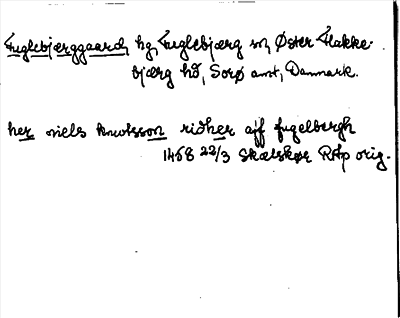 Fuglebjærggaard, hg, Fuglebjærg sn, Øster Flakke-
bjærg hd, Sorø amt, Danmark.
her niels knutsson ridher aff fugelbergh
1468 22/3 Skælskør RAp orig.